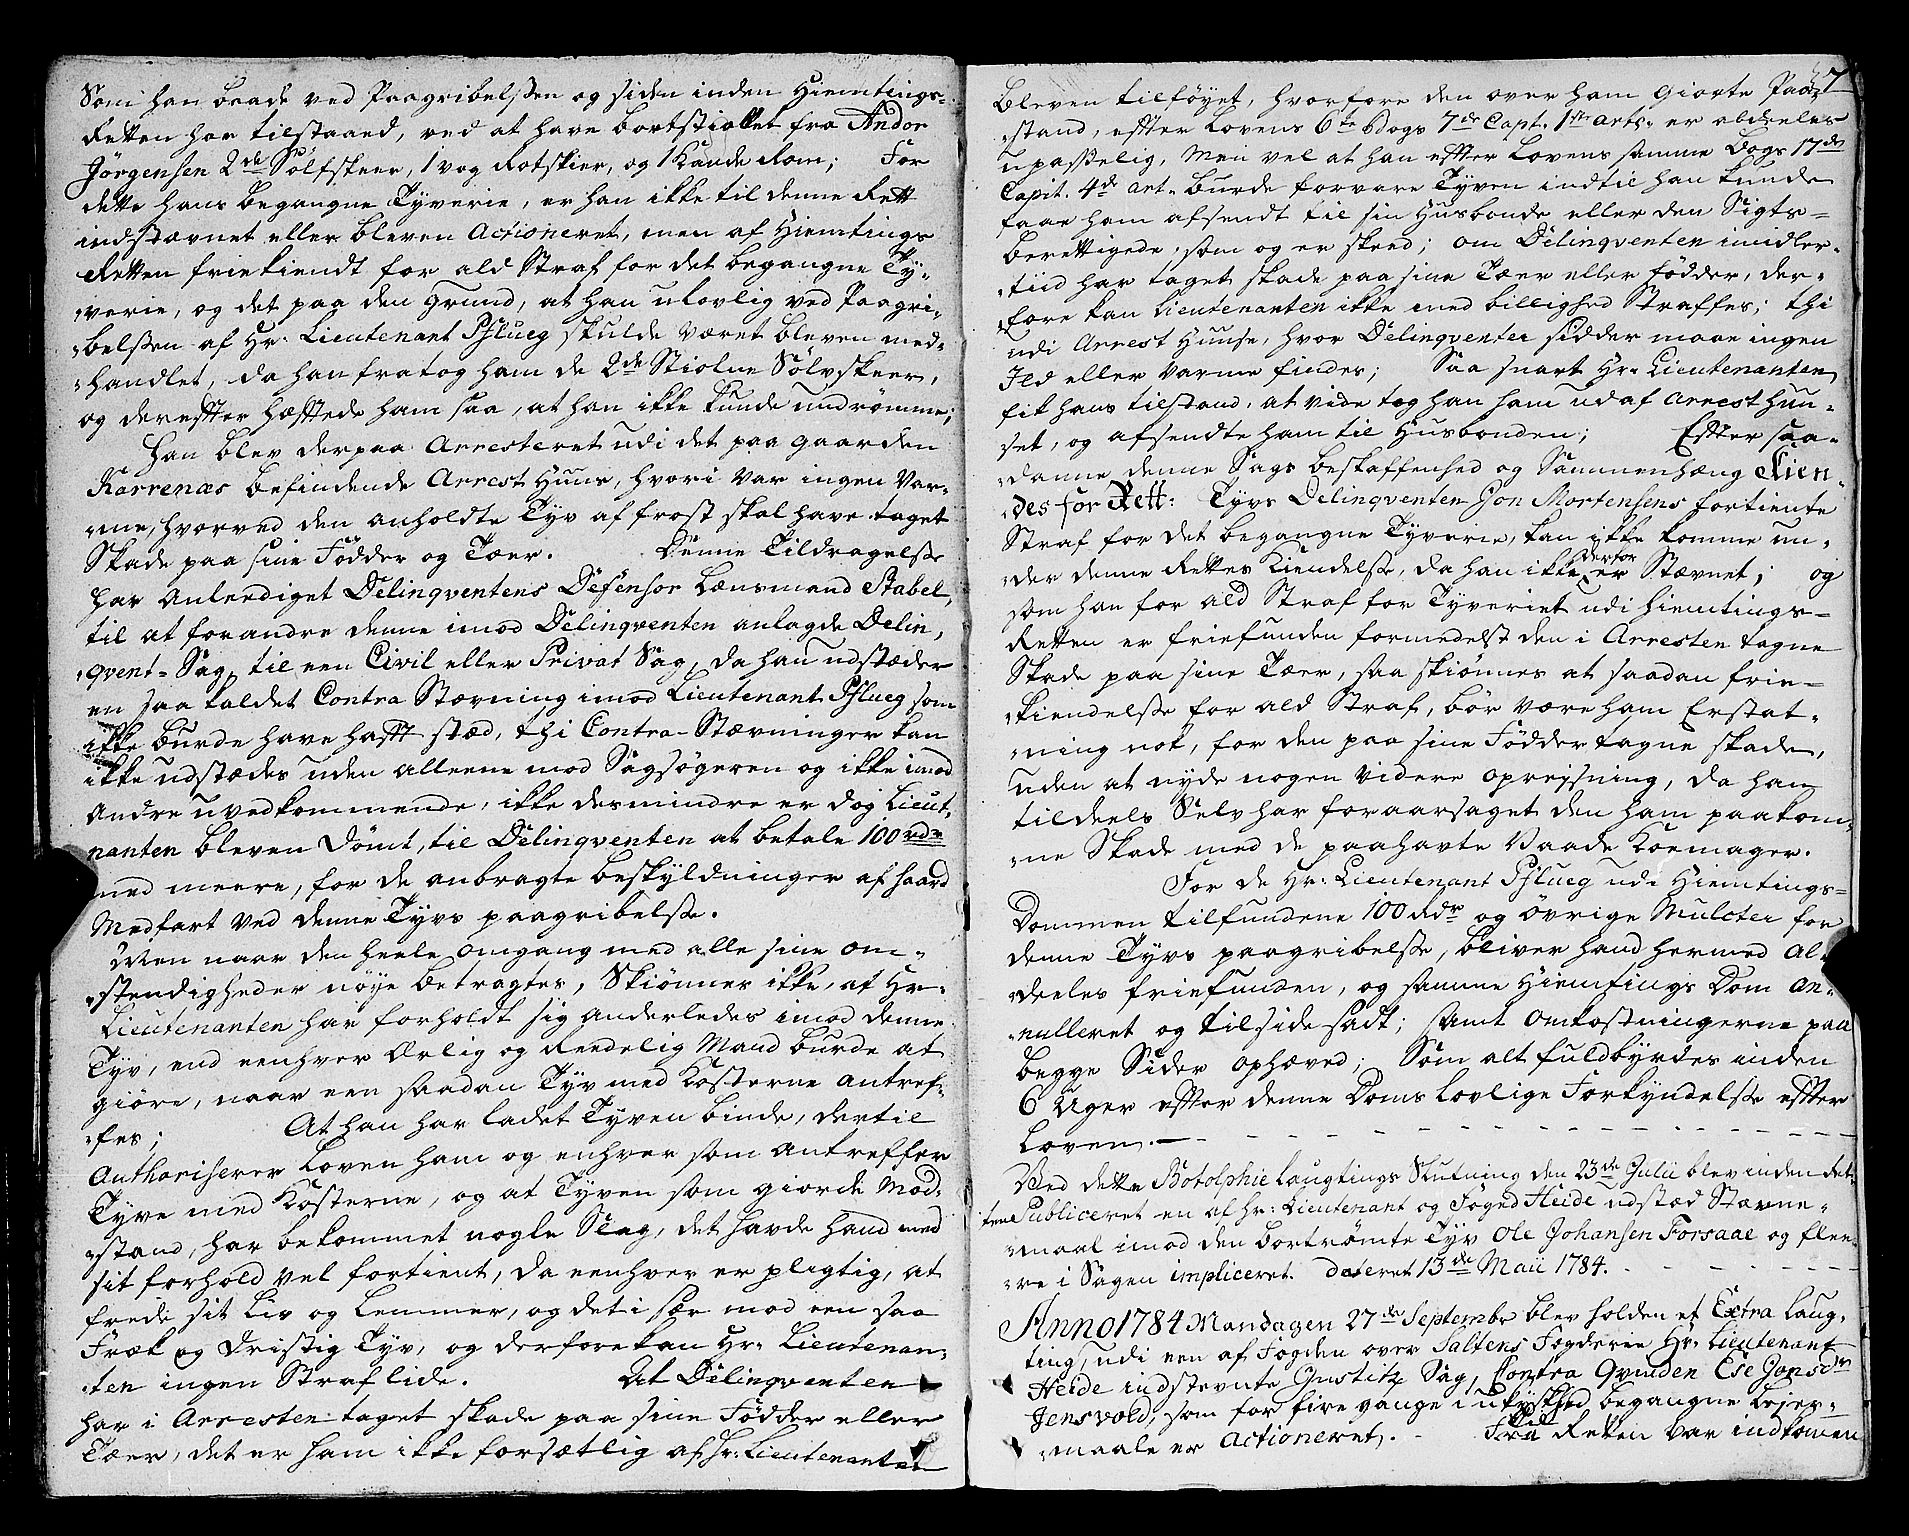 Som han baade ved Paagribelssen og siden inden Hiemtings-
Retten har tilstaaed, ved at have bortstiaalet fra Andor
Jörgensen 2de Sölfskeer, 1 vog Rotskier, og 1 Kande Rom; For
dette hans begangne Tyverie, er han ikke til denne Rett
indstævnet eller bleven Actioneret, men af Hiemtings
Retten friekiendt for ald Straf for det begangne Ty-
verie, og det paa den Grund, at han ulovlig ved Paagri-
belssen af Hr: Lieutenant Pflueg skulde været bleven med-
handlet, da han fratog ham de 2de Stiolne Sölvskeer,
og derefter hæftede ham saa, at han ikke kunde undrömme;
Han blev derpaa Arresteret udi det paa gaarden
Karrenæs befindende Arrest Huus, hvori var ingen Var-
me, hvorved den anholdte Tyv af frost skal have taget
Skade paa sine Födder og Tæer. Denne Tildragelsse
har Anlediget Delinqventens Defensor Lænsmand Stabel,
til at forandre denne imod Delinqventen anlagde Delin-
qvent-Sag, til een Civil eller Privat Sag, da han udstæder
en saa kaldet Contra Stævning imod Lieutenant Pflueg som
ikke burde have hafft stæd, thi Contra-Stævninger kan
ikke udstædes uden alleene mod Sagsögeren og ikke imod
Andre uvedkommende, ikke desmindre er dog Lieut-
nanten bleven Dömt, til Delinqventen at betale 100 rdr
med meere, for de anbragte beskyldninger af haard
Medfart ved denne Tyvs paagribelsse.
Men naar den heele omgang med alle sine om-
stendigheder nöye betragtes, Skiönnes ikke, at Hr:
Lieutenanten har forholdt sig anderledes imod denne
Tyv, end eenhver Ærlig og Reedelig Mand burde at
giöre, naar een saadan Tyv med Kosterne antref-
fes; At han har ladet Tyven binde, dertil
Authoriserer Loven ham og enhver som antreffer
Tyve med Kosterne, og at Tyven som giorde Mod-
stand, har bekommet nogle Slag, det havde hand med
sit forhold vel fortient, da eenhver er pligtig, at
frede sit Liv og Lemmer, og det i sær mod een saa
Fræk og Dristig Tyv, og derfore kan Hr: Lieutenan-
ten ingen Straf lide. At Delinqventen
har i Arresten taget skade paa sine Födder eller
Tæer, det er ham ikke forsætlig af Hr: Lieutenanten
7
bleven tilföyet, hvorfore den over ham giorte Paa-
stand, effter Lovens 6te Bogs 7de Capt. 1ste arts. er aldeeles
upasselig, Men vel at han effter Lovens samme Bogs 17de
Capit. 4de art. burde forvare Tyven indtil han kunde
faae ham afsendt til sin Husbonde eller den Sigts-
berettigede, som og er skeed; om Delinqventen imidler-
tiid har taget skade paa sine Tæer eller födder, der-
fore kan Lieutenanten ikke med billighed Straffes; thi
udi Arrest Huuse, hvor Delinqventer sidder maae ingen
Ild eller Varme findes; Saa snart Hr: Lieutenanten
fik hans tilstand, at vide tog han ham ud af Arrest Huu-
set, og afsendte ham til Husbonden; Effter saa-
danne denne Sags beskaffenhed og Sammenhæng Kien-
des for Rett: Tyvs Delinqventen Jon Mortensens fortiente
Straf for det begangne Tyverie, kan ikke komme un-
der denne Rettes Kiendelsse, da han ikke derfor er Stævnet; og
som han for ald Straf for Tyveriet udi Hiemtings-
Retten er friefunden formedelst den i Arresten tagne
Skade paa sine Tæer, saa skiönnes at saadan frie-
kiendelsse for ald Straf, bör være ham Erstat-
ning nok, for den paa sine Födder tagne skade,
uden at nyde nogen videre opreysning, da han
tildeels Selv har foraarsaget den ham paakom-
ne Skade med de paahavte Vaade Koemager.
For de Hr: Lieutenant Pflueg udi Hiemtings-
Dommen tilfundene 100 Rdr og övrige Mulcter for
denne Tyvs paagribelsse, bliver hand hermed al-
deeles friefunden, og samme Hiemtings Dom An-
nulleret og tilside sadt; samt Omkostningerne paa
begge Sider ophæved; Som alt fuldbyrdes inden
6 Uger effter denne Doms Lovlige Forkyndelsse effter
Loven.
Ved dette Botolphie Laugtings Slutning den 23de Julii blev inden Ret-
ten Publiceret en af Hr: Lieutenant og Foged Heide udstæd Stævne-
maal imod den bortrömte Tyv Ole Johansen Forsaae og flee-
re i Sagen impliceret. dateret 13de Maii 1784.
Anno 1784 Mandagen 27de Septembr blev holden et Extra Laug-
ting, udi een af Fogden over Saltens Fogderie Hr: Lieutenant
Heide indstevnte Justitz Sag, Contra Qvinden Else Jonsdr
Jensvold, som for fire gange i ukyskhed begangne Lejer-
maale er Actioneret. Fra Retten var indkomen